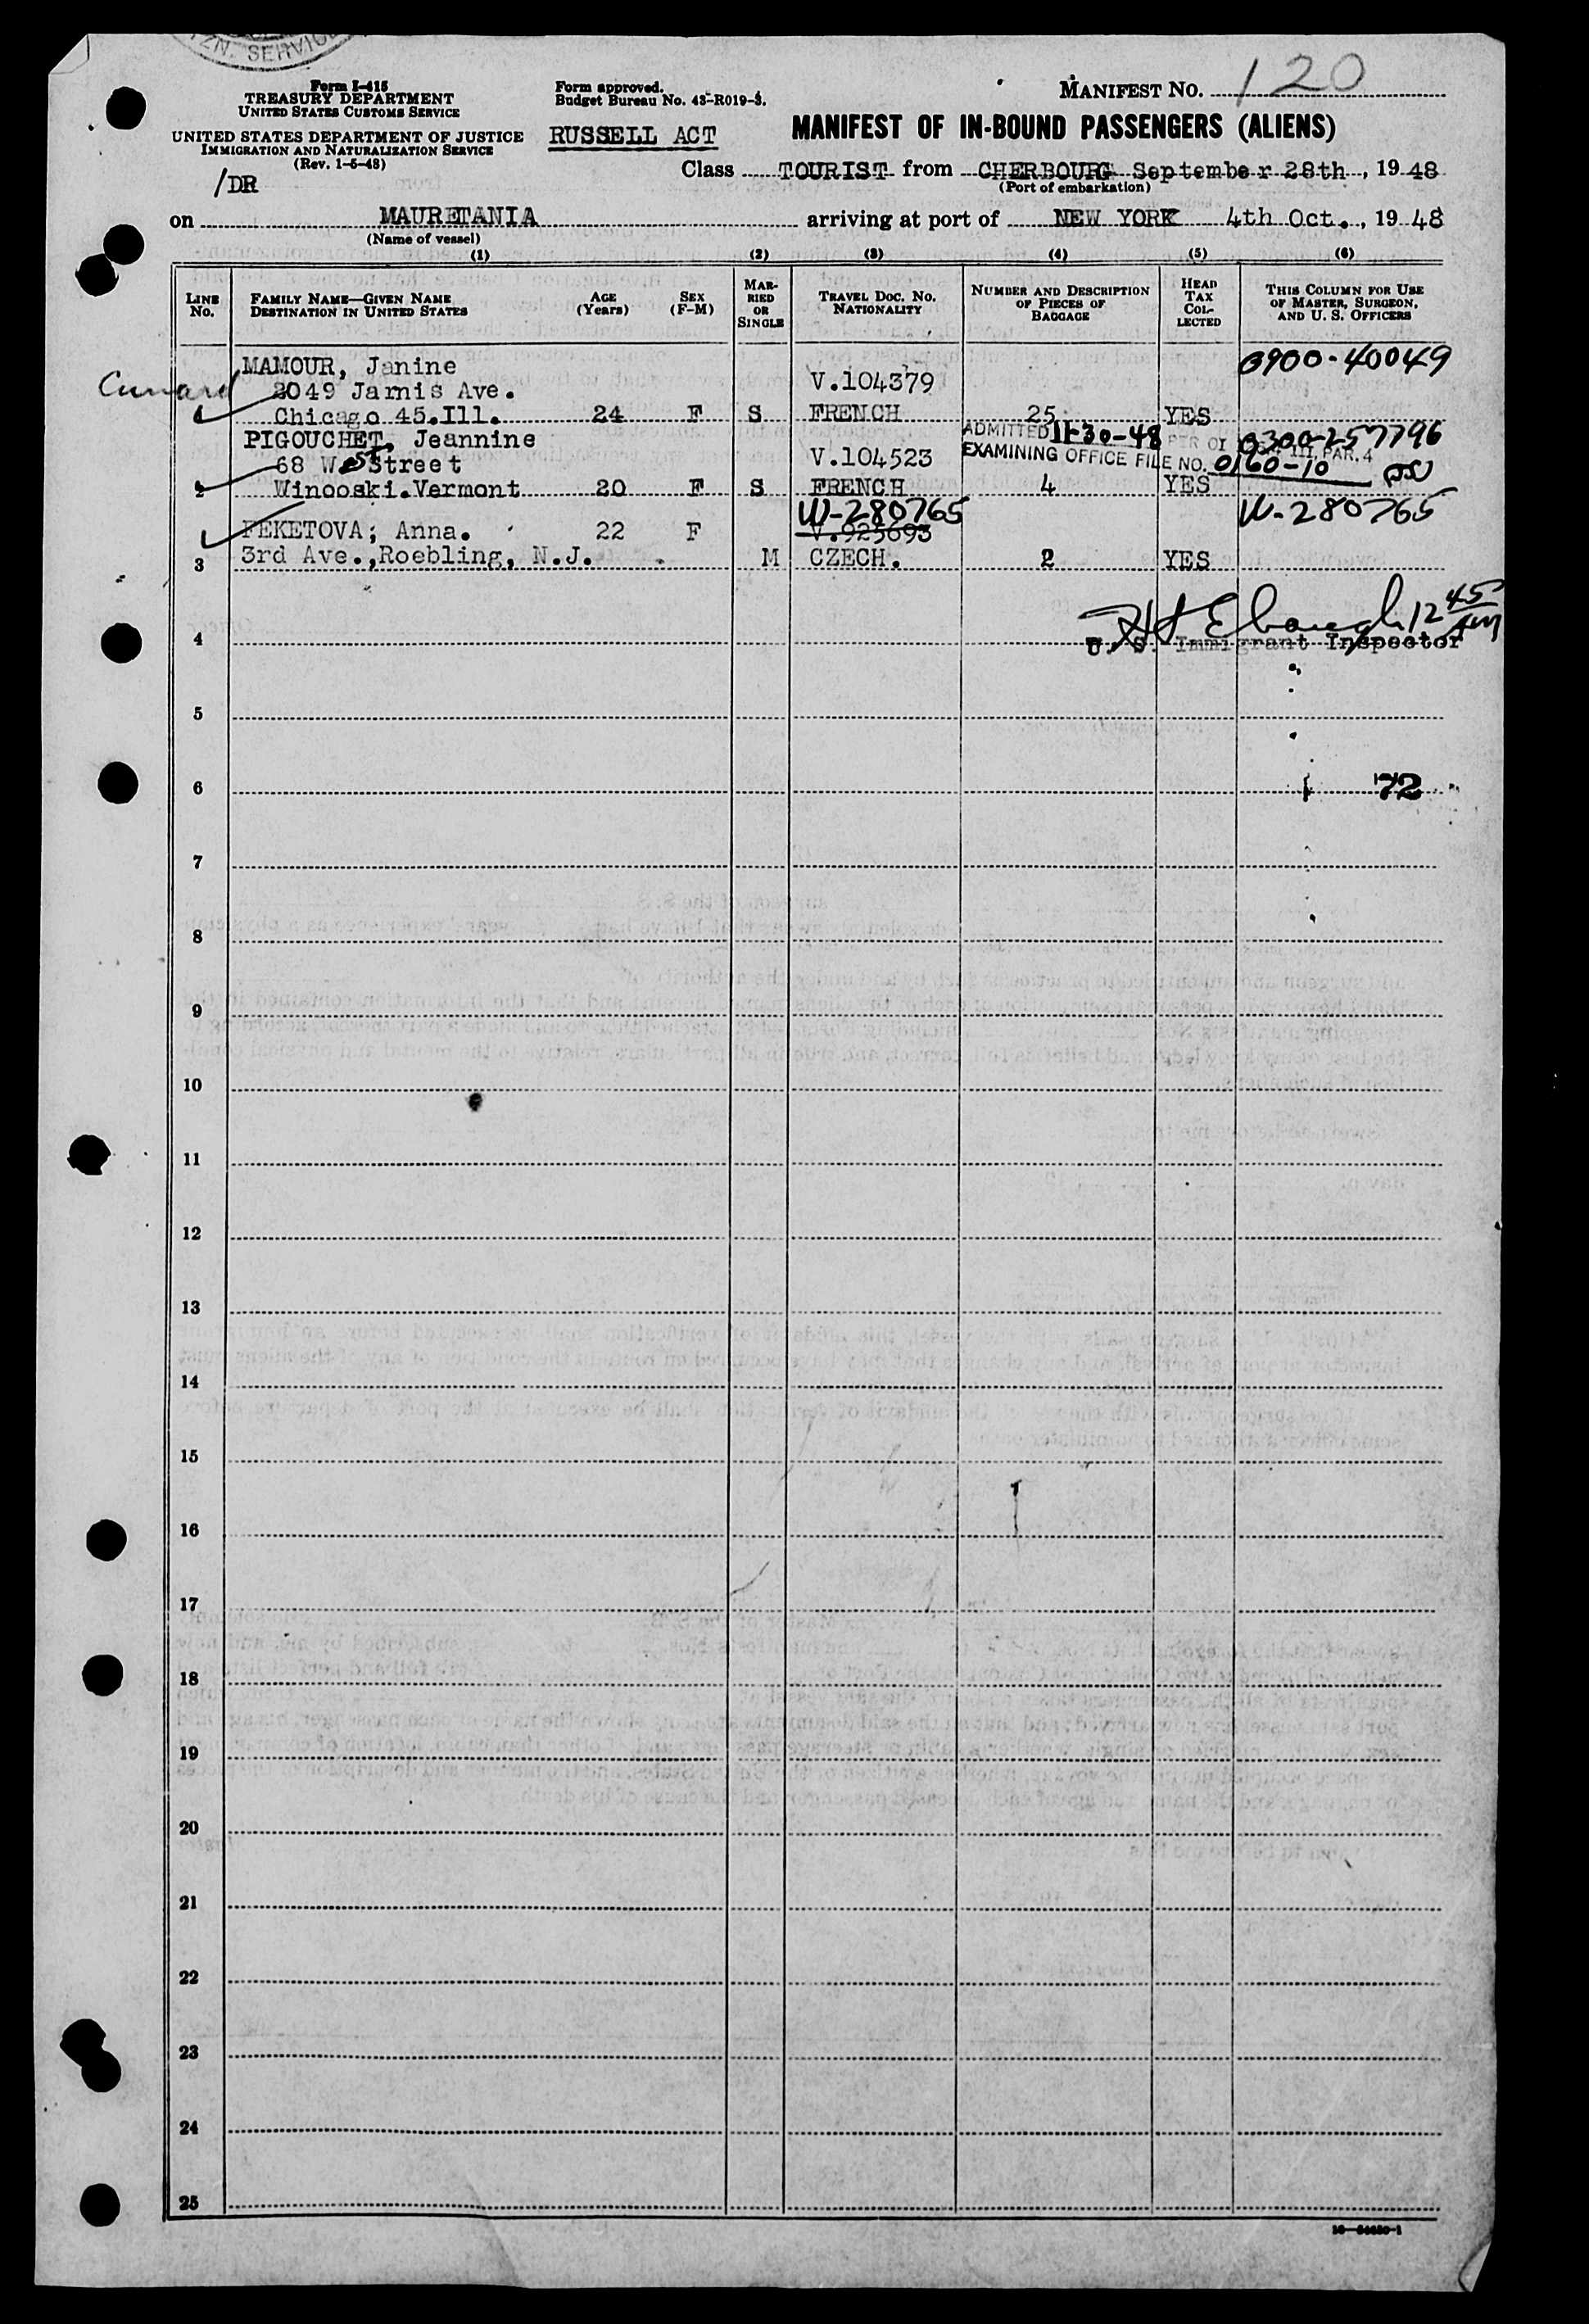 ZN. SERVICE
Form I-415
TREASURY DEPARTMENT
UNITED STATES CUSTOMS SERVICE
UNITED STATES DEPARTMENT OF JUSTICE
IMMIGRATION AND NATURALIZATION SERVICE
(Rev. 1-5-48)
/DR
Form approved.
Budget Bureau No. 43-R019-3.
RUSSELL ACT
MANIFEST NO. 120
MANIFEST OF IN-BOUND PASSENGERS (ALIENS)
Class TOURIST from CHERBOURG September 28th, 1948
(Port of embarkation)
on MAURETANIA arriving at port of NEW YORK 4th Oct., 1948
(Name of vessel)
(1) (2) (3) (4) (5) (6)
LINE NO.
FAMILY NAME—GIVEN NAME
DESTINATION IN UNITED STATES
AGE (Years)
SEX (F-M)
MARRIED OR SINGLE
TRAVEL DOC. NO.
NATIONALITY
NUMBER AND DESCRIPTION OF PIECES OF BAGGAGE
HEAD TAX COLLECTED
THIS COLUMN FOR USE OF MASTER, SURGEON, AND U. S. OFFICERS
MAMOUR, Janine 0900-40049
Cunard 2049 Jarnis Ave. V.104379
Chicago 45.Ill. 24 F S FRENCH 25 YES
PIGOUCHET, Jeannine ADMITTED 11-30-48 PER OI III, PAR. 4 0300-257796
68 West Street V.104523 EXAMINING OFFICE FILE NO. 0160-10
2 Winooski.Vermont 20 F S FRENCH 4 YES
W-280765 W-280765
FEKETOVA; Anna. 22 F V.925693
3 3rd Ave.,Roebling, N.J. M CZECH. 2 YES
12 45
4 U. S. Immigrant Inspector
5
6 72
7
8
9
10
11
12
13
14
15
16
17
18
19
20
21
22
23
24
25